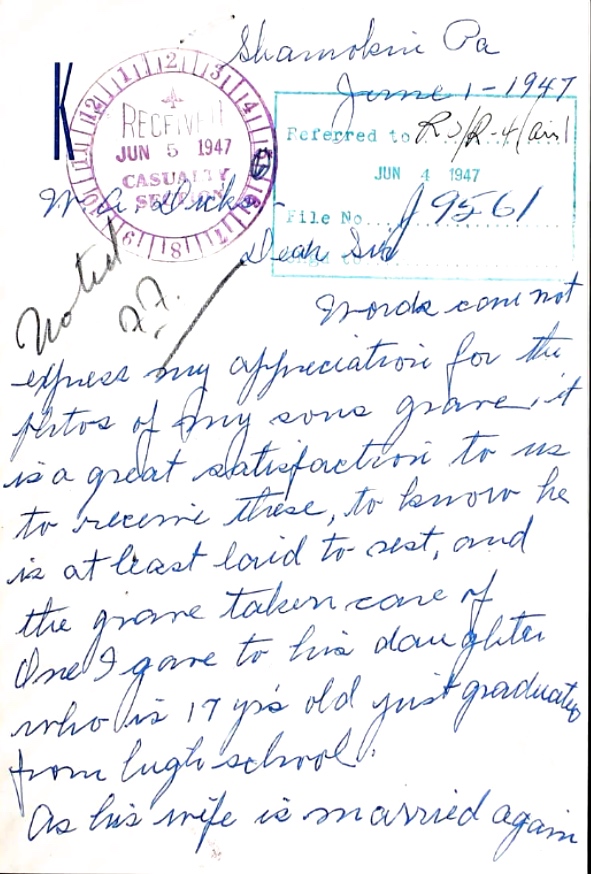 Shamokin Pa
June 1 - 1947
K
12 1 2 3 4
RECEIVED
JUN 5 1947
CASUALTY
SECTION
10 9 8 7
Referred to R
JUN 4 1947
File No. J 9561
W. A. Dicks
Dear Sir
Noted
J.J.
Words cane not
express my appreciation for the
photos of my sons grave, it
is a great satisfaction to us
to receive these, to know he
is at least laid to rest, and
the grave taken care of
One I gave to his daughter
who is 17 yrs old just graduated
from high school.
As his wife is married again